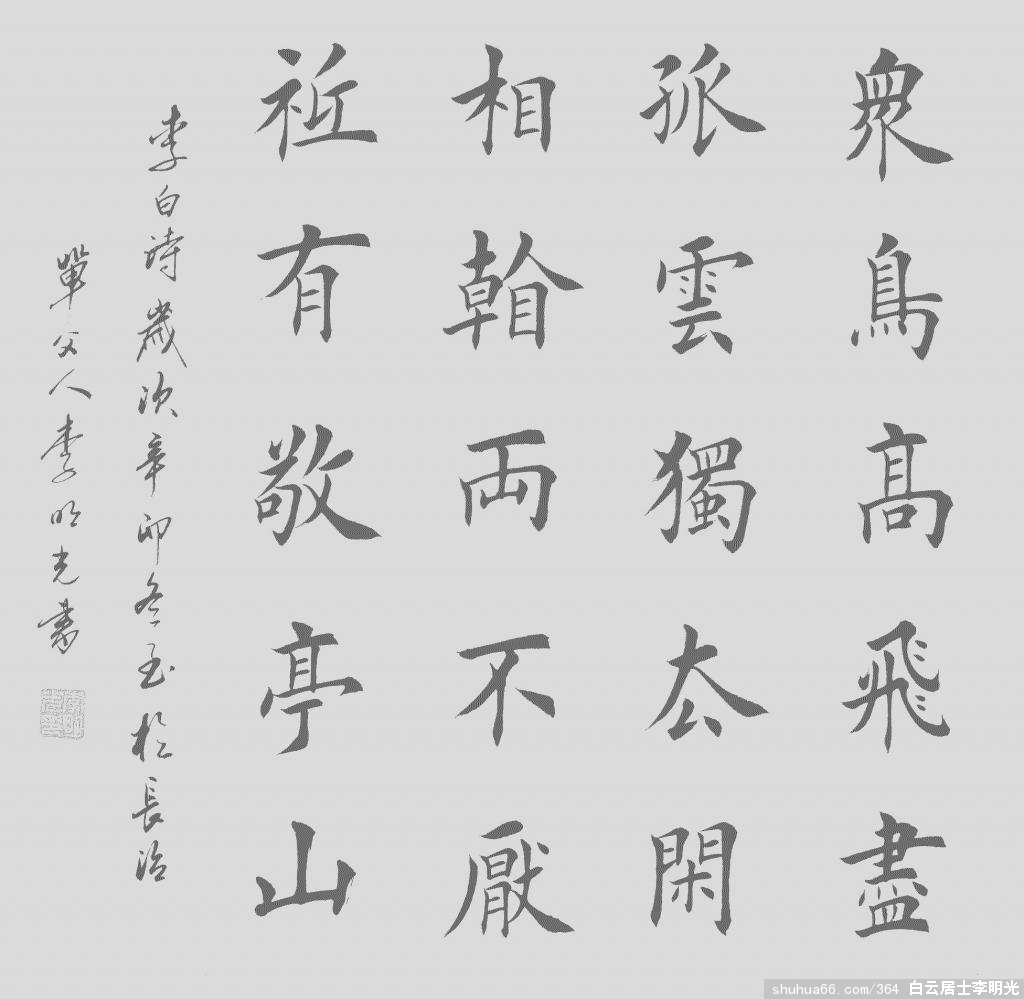 衆鳥髙飛盡
孤雲獨厺閑
相看両不厭
祗有敬亭山
李白詩歲次辛卯冬至於長治
單父人李明光書
shuhua66.com/364 白云居士李明光